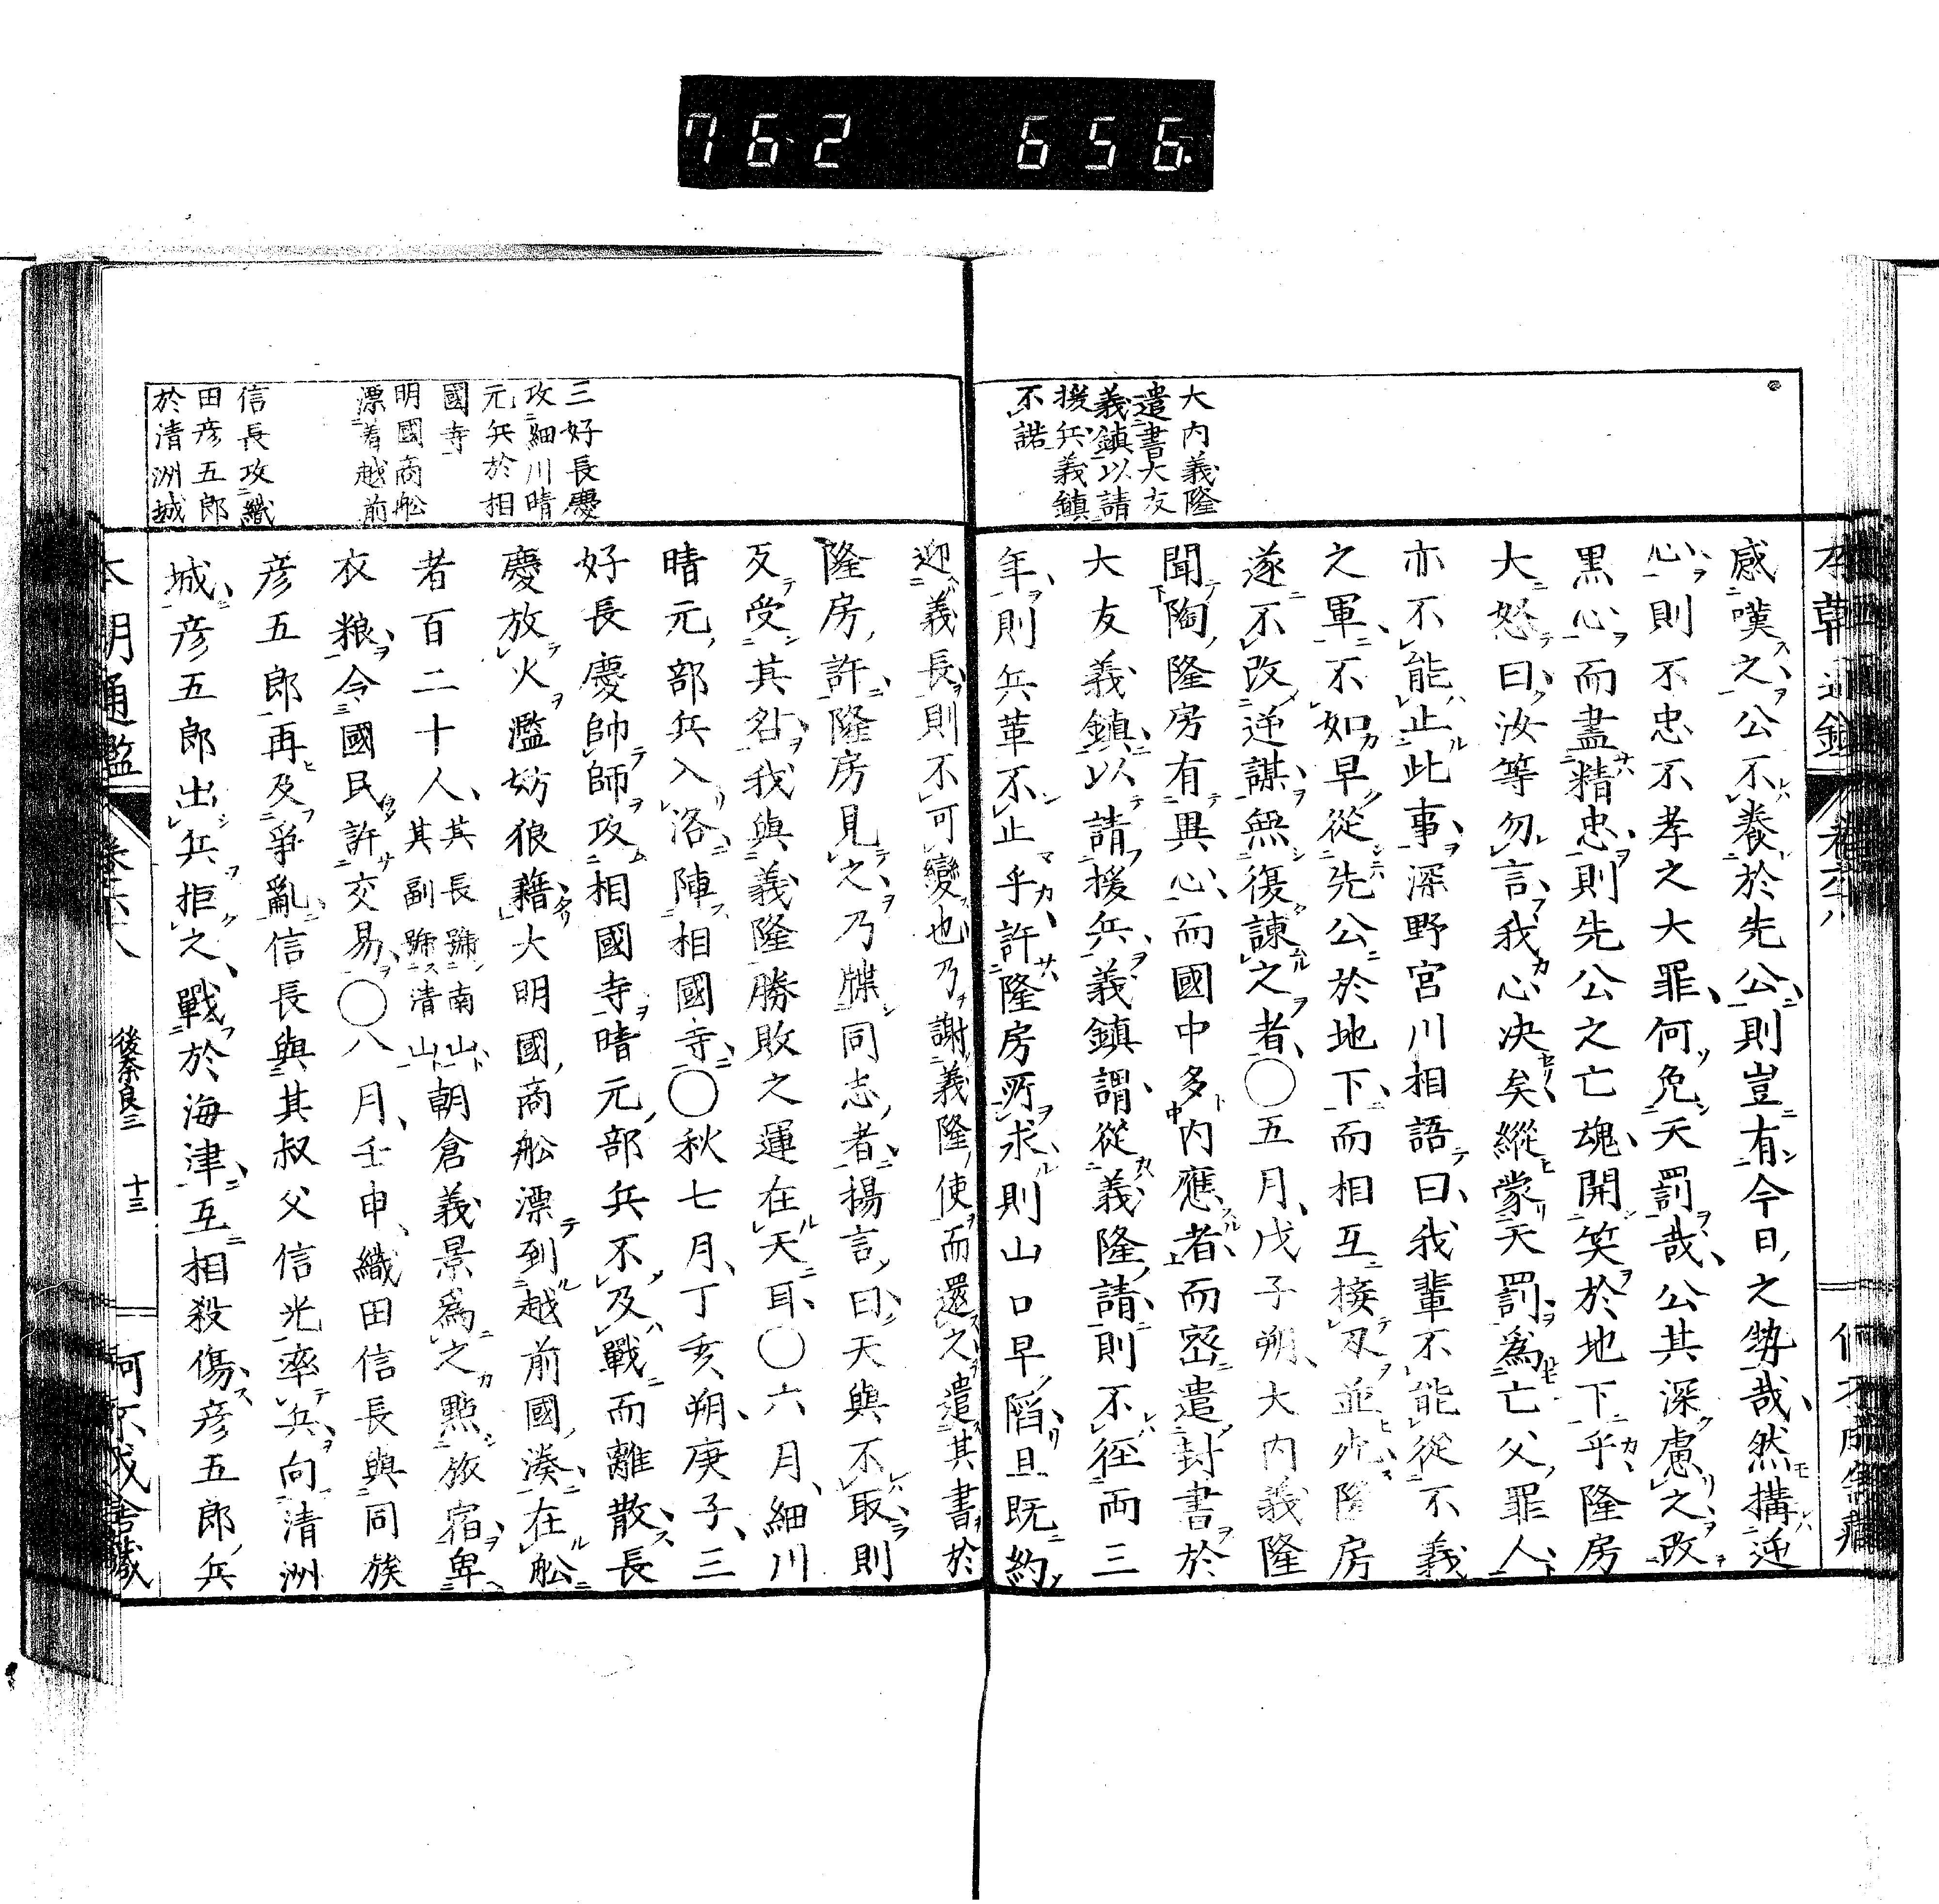 762 656
大内義隆
遣書大友
義鎮以請
援兵義鎮
不諾
感嘆之公不養於先公則豈有今日之勢哉然搆逆
心則不忠不孝之大罪何免天罰哉公其深慮之改
黒心而盡精忠則先公之亡魂開笑於地下乎隆房
大怒曰汝等勿言我心决矣縱蒙天罰為亡父罪人
亦不能止此事深野宮川相語曰我輩不能從不義
之軍不如早從先公於地下而相互接刄並死隆房
遂不改逆謀無復諫之者〇五月戊子朔大内義隆
聞陶隆房有異心而國中多内應者而密遣封書於
大友義鎮以請援兵義鎮謂從義隆請則不徑両三
年則兵革不止乎許隆房所求則山口早䧟且既約
迎義長則不可變也乃謝義隆使而還之遣其書於
隆房許隆房見之乃牒同志者揚言曰天與不取則
反受其咎我與義隆勝敗之運在天耳〇六月細川
晴元部兵入洛陣相國寺〇秋七月丁亥朔庚子三
好長慶帥師攻相國寺晴元部兵不及戰而離散長
慶放火濫妨狼藉大明國商舩漂到越前國湊在舩
者百二十人其長號南山其副號清山朝倉義景為之點旅宿卑
衣粮令國民許交易〇八月壬申織田信長與同族
彦五郎再及爭亂信長與其叔父信光率兵向清洲
城彦五郎出兵拒之戰於海津互相殺傷彦五郎兵
三好長慶
攻細川晴
元兵於相
國寺
明國商舩
漂着越前
信長攻織
田彦五郎
於清洲城
本朝通鑑
後奈良三
十三